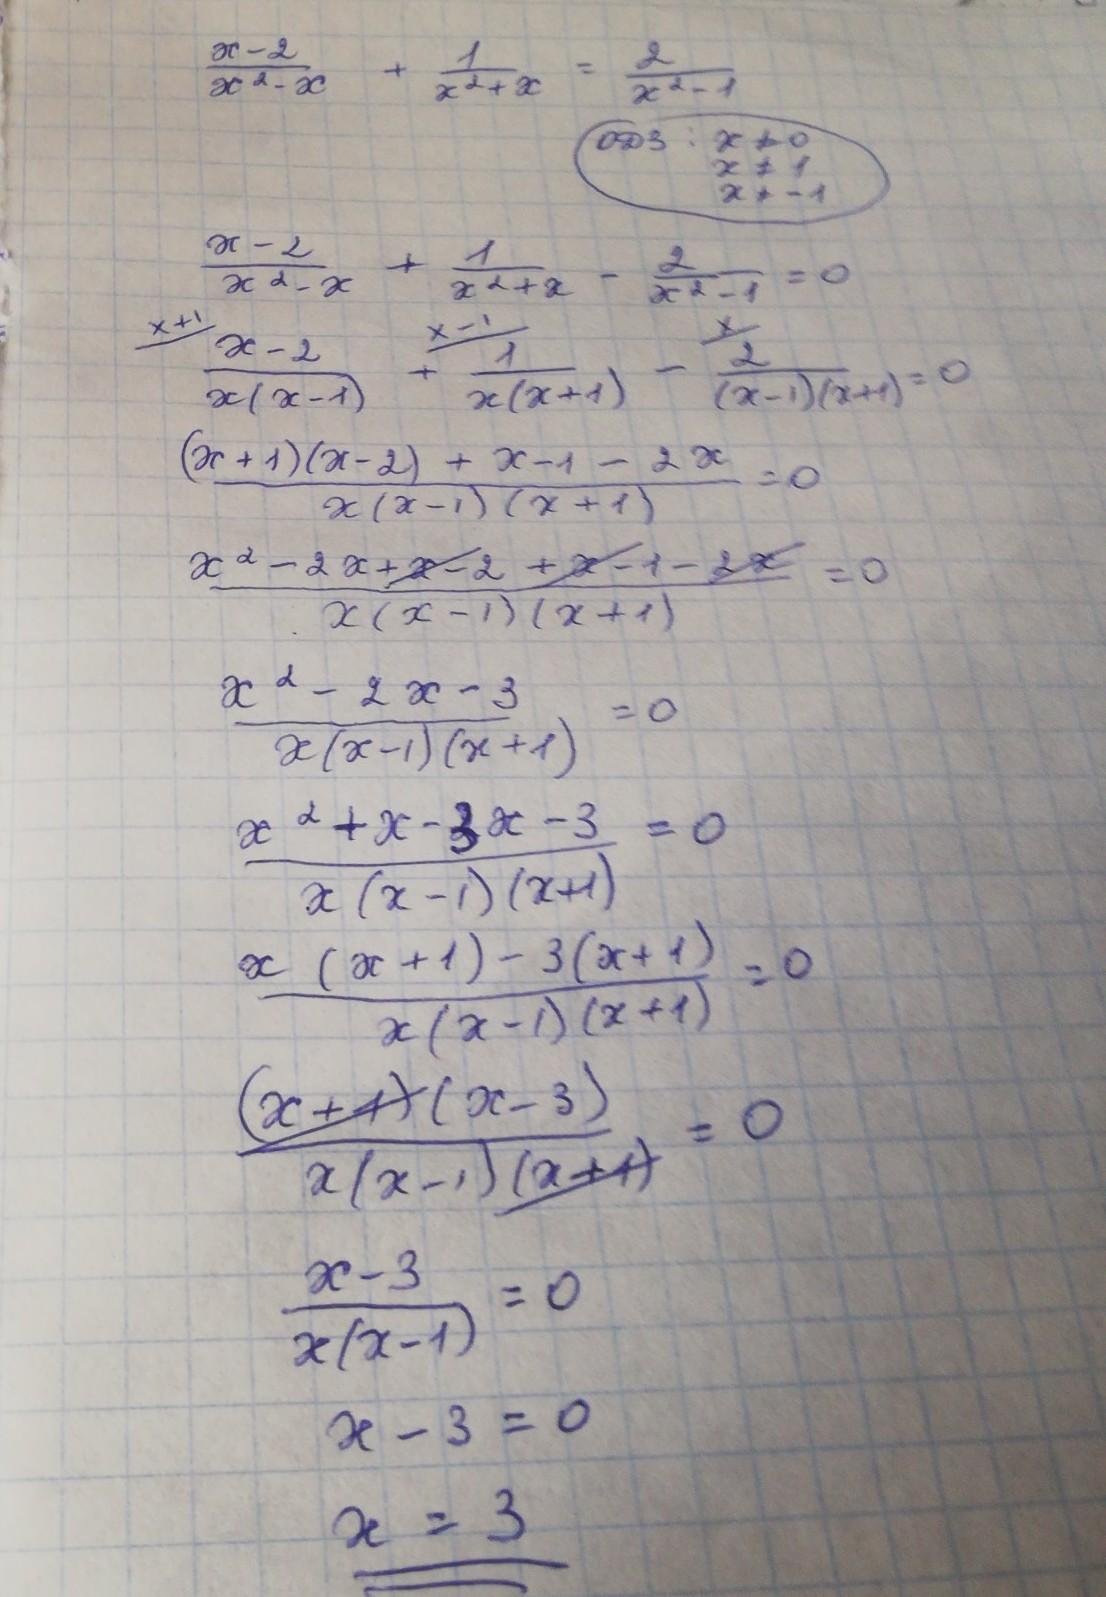 x-2/x²-x + 1/x²+x = 2/x²-1
ОДЗ: x ≠ 0
x ≠ 1
x ≠ -1
x-2/x²-x + 1/x²+x - 2/x²-1 = 0
x+1/ x-2/x(x-1) + x-1/ 1/x(x+1) - x/ 2/(x-1)(x+1) = 0
(x+1)(x-2) + x-1 - 2x/x(x-1)(x+1) = 0
x² - 2x + x - 2 + x - 1 - 2x/x(x-1)(x+1) = 0
x² - 2x - 3/x(x-1)(x+1) = 0
x² + x - 3x - 3/x(x-1)(x+1) = 0
x(x+1) - 3(x+1)/x(x-1)(x+1) = 0
(x+1)(x-3)/x(x-1)(x+1) = 0
x-3/x(x-1) = 0
x - 3 = 0
x = 3